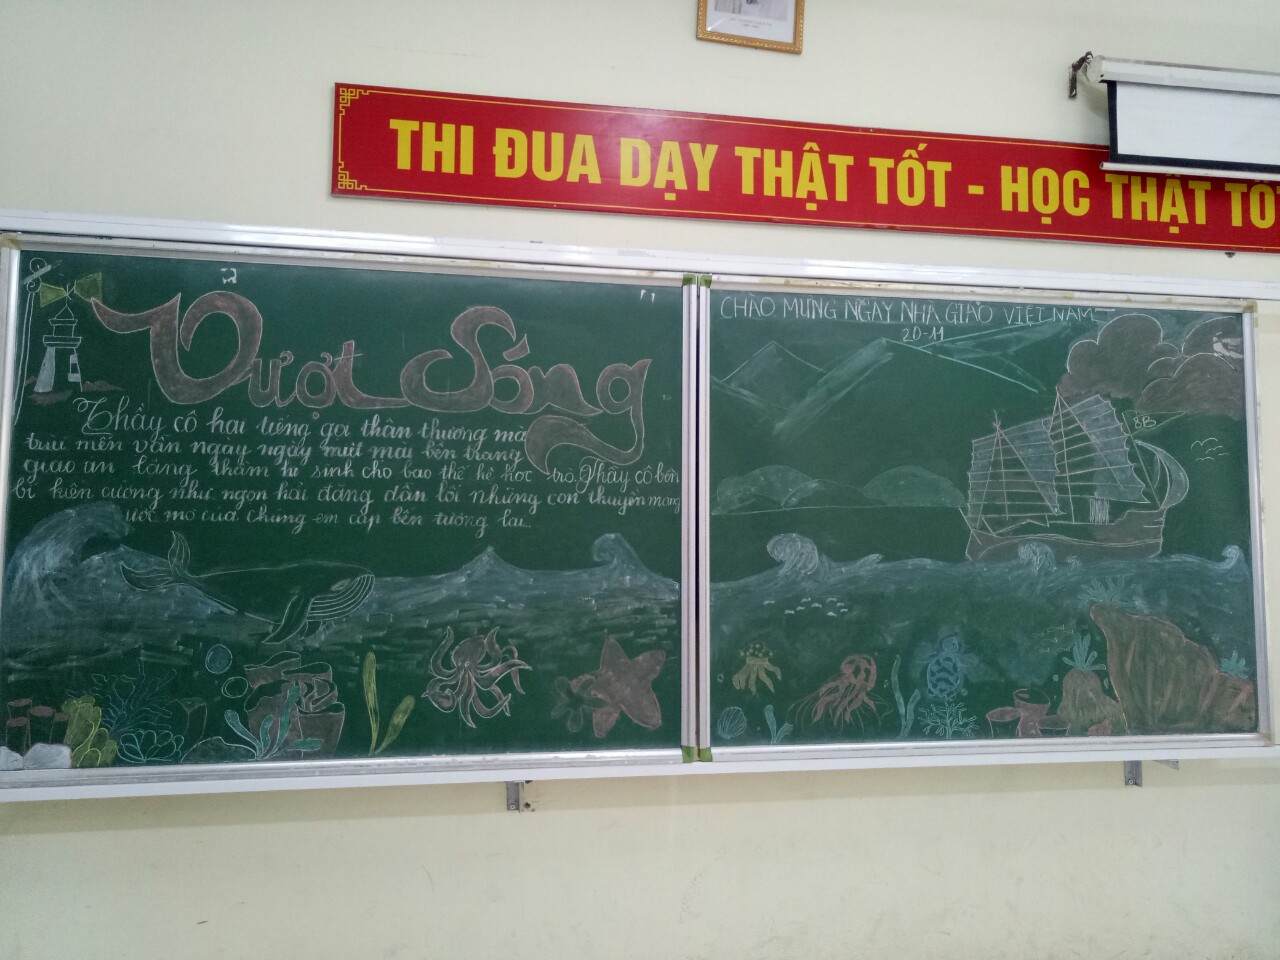 THI ĐUA DẠY THẬT TỐT - HỌC THẬT TỐ
Vượt Sóng
Thầy cô hai tiếng gọi thân thương mà
trìu mến vẫn ngày ngày miệt mài bên trang
giáo án lặng thầm hi sinh cho bao thế hệ học trò. Thầy cô bền
bỉ kiên cường như ngọn hải đăng dẫn lối những con thuyền mang
ước mơ của chúng em cập bến tương lai...
CHÀO MỪNG NGÀY NHÀ GIÁO VIỆT NAM
20-11
8B